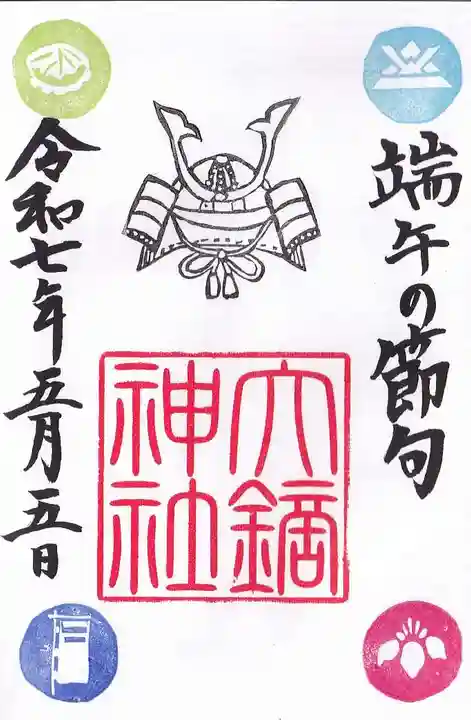 端午の節句
大鏑
神社
令和七年五月五日